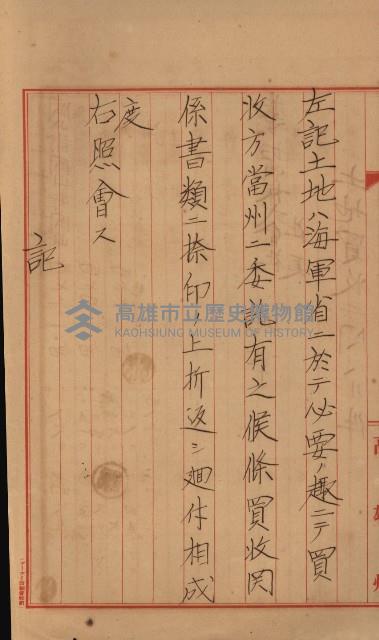 左記土地ハ海軍省ニ於テ必要ノ趣ニテ買
收方當州ニ委託有之候條買收関
係書類ニ捺印ノ上折返シ廻付相成
度
右照會ス
記
高雄州
高雄市立歷史博物館
KAOHSIUNG MUSEUM OF HISTORY